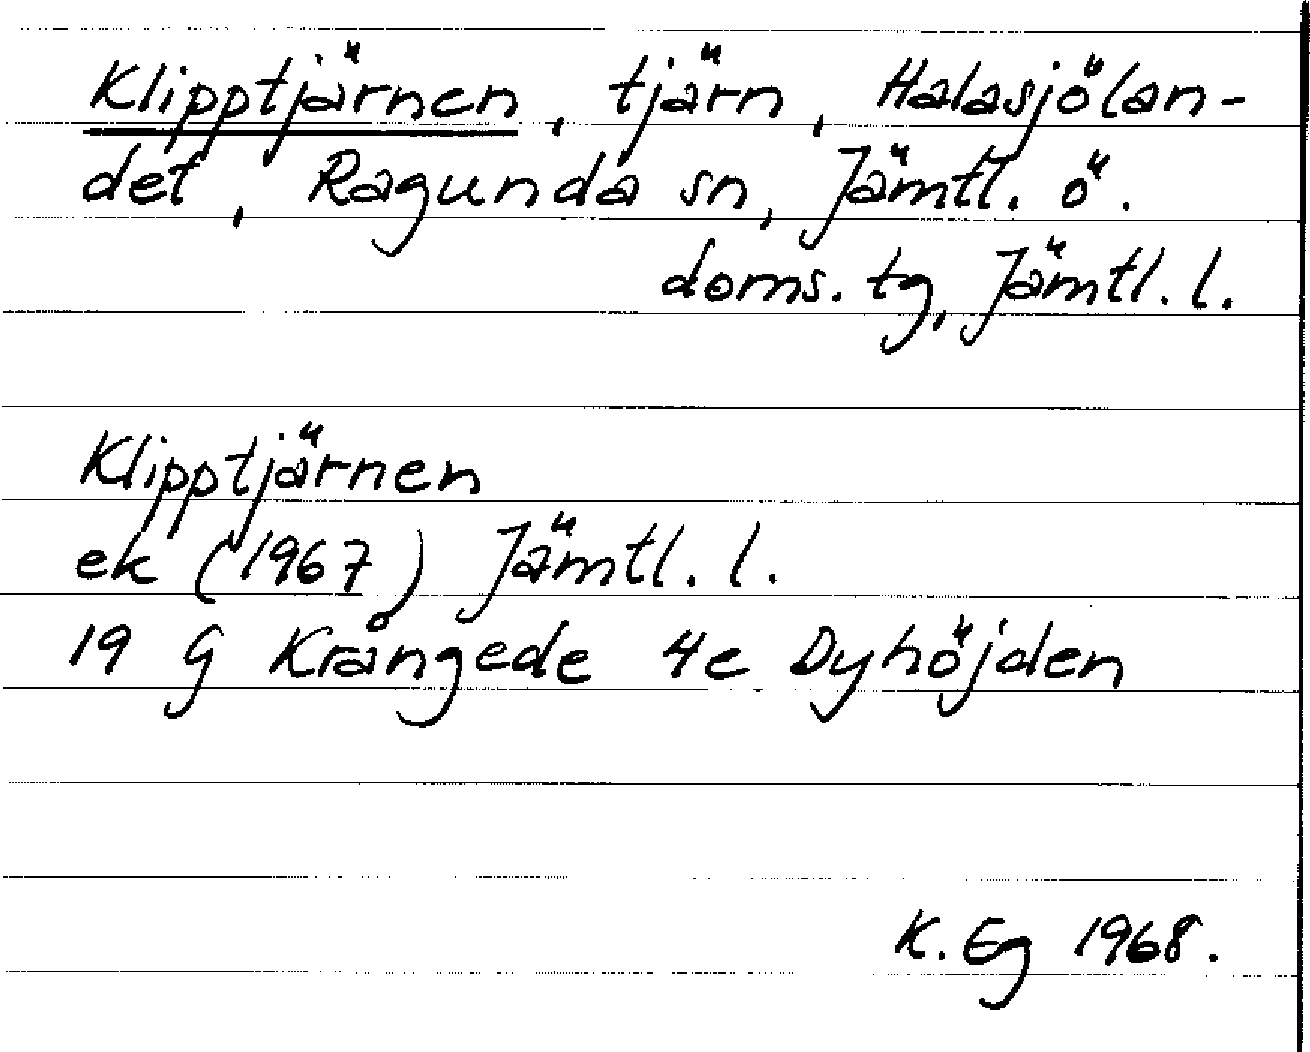 Klipptjärnen, tjärn, Halasjölan-
det, Ragunda sn, Jämtl. ö.
doms. tg, Jämtl. l.
Klipptjärnen
ek (1967) Jämtl. l.
19 G Krångede 4e Dyhöjden
K. Eg 1968.